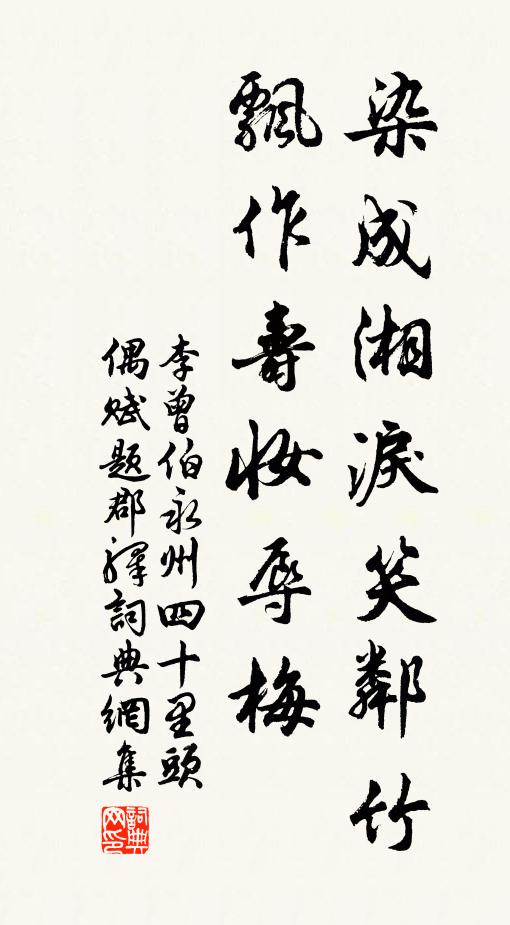 染成湘淚笑鄰竹
飄作壽妝辱梅
李曾伯永州四十里頭
偶賦題郡驛詞典網集
詞典网印